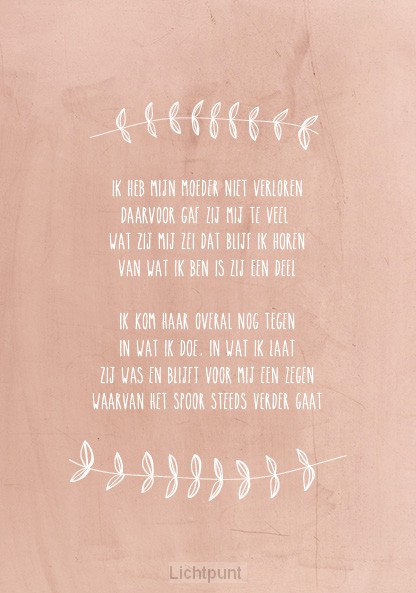 IK HEB MIJN MOEDER NIET VERLOREN
DAARVOOR GAF ZIJ MIJ TE VEEL
WAT ZIJ MIJ ZEI DAT BLIJF IK HOREN
VAN WAT IK BEN IS ZIJ EEN DEEL
IK KOM HAAR OVERAL NOG TEGEN
IN WAT IK DOE. IN WAT IK LAAT
ZIJ WAS EN BLIJFT VOOR MIJ EEN ZEGEN
WAARVAN HET SPOOR STEEDS VERDER GAAT
Lichtpunt